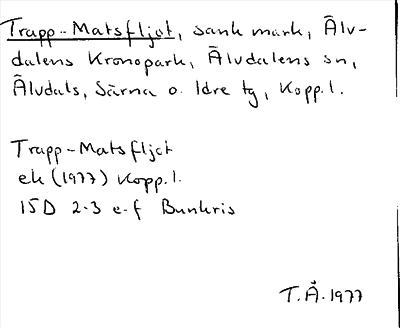 Trapp-Matsfljot, sank mark, Älv-
dalens Kronopark, Älvdalens sn,
Älvdals, Särna o. Idre tg, Kopp.l.
Trapp-Matsfljot
ek (1977) Kopp.l.
15D 2-3 e-f Bunkris
T.Å. 1977